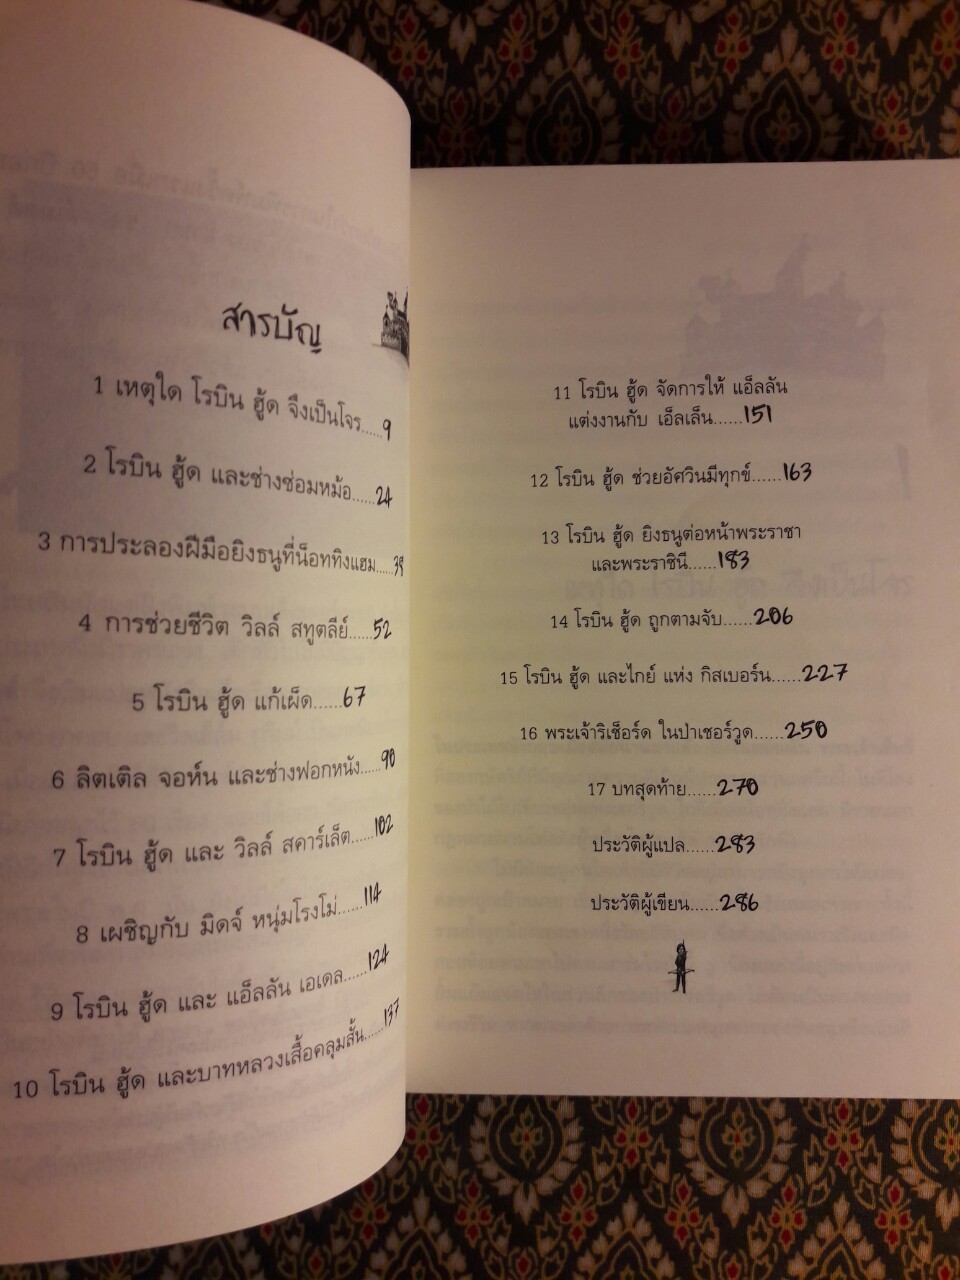 สารบัญ
1 เหตุใด โรบิน ฮู้ด จึงเป็นโจร.....9
2 โรบิน ฮู้ด และช่างซ่อมหม้อ......24
3 การประลองฝีมือยิงธนูที่น็อททิงแฮม.....39
4 การช่วยชีวิต วิลล์ สทูตลีย์......52
5 โรบิน ฮู้ด แก้เผ็ด......67
6 ลิตเติล จอห์น และช่างฟอกหนัง.....90
7 โรบิน ฮู้ด และ วิลล์ สคาร์เล็ต......102
8 เผชิญกับ มิดจ์ หนุ่มโรงโม่......114
9 โรบิน ฮู้ด และ แอ็ลลัน เอเดล......124
10 โรบิน ฮู้ด และบาทหลวงเสื้อคลุมสั้น......137
11 โรบิน ฮู้ด จัดการให้ แอ็ลลัน
แต่งงานกับ เอ็ลเล็น......151
12 โรบิน ฮู้ด ช่วยอัศวินมีทุกข์......163
13 โรบิน ฮู้ด ยิงธนูต่อหน้าพระราชา
และพระราชินี......183
14 โรบิน ฮู้ด ถูกตามจับ......206
15 โรบิน ฮู้ด และไกย์ แห่ง กิสเบอร์น......227
16 พระเจ้าริเช็อร์ด ในป่าเชอร์วูด......250
17 บทสุดท้าย......270
ประวัติผู้แปล......283
ประวัติผู้เขียน......286